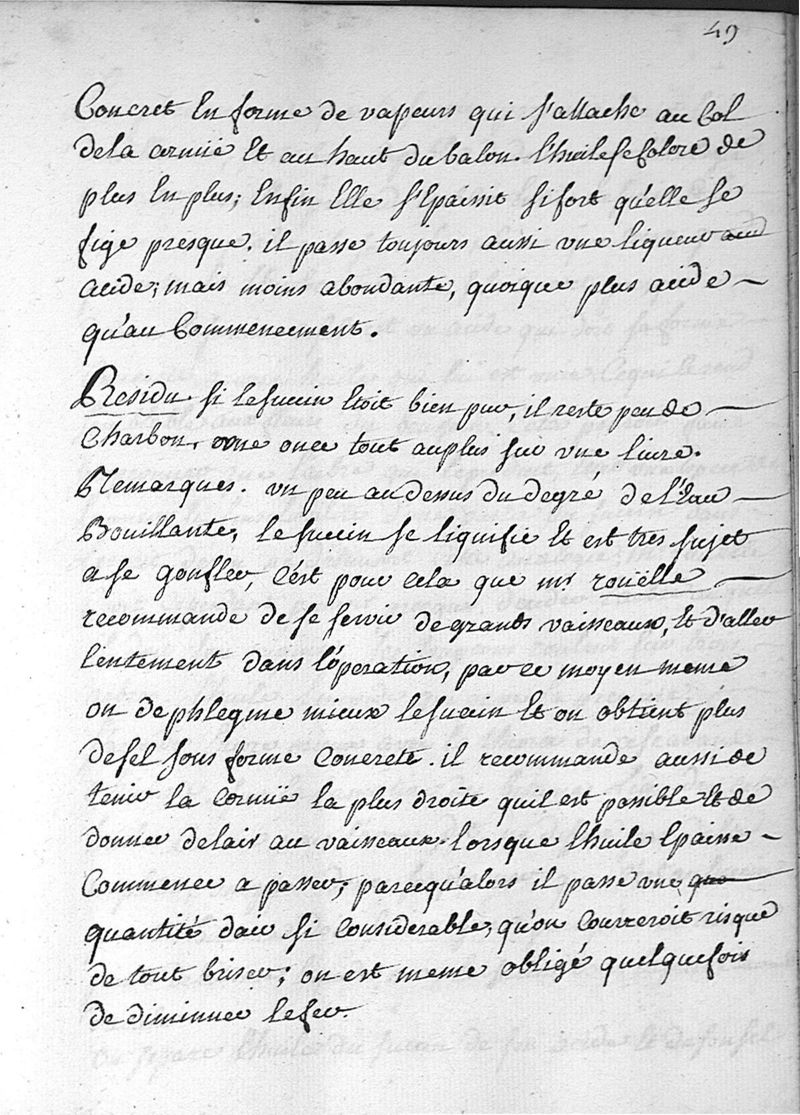 49
Concret En forme de vapeurs qui s'attache au Col
de la cornüe Et au haut du balon. l'huile se Colore de
plus En plus; Enfin Elle s'Epaissit si fort qu'elle se
fige presque. il passe toujours aussi une liqueur
acide; mais moins abondante, quoique plus acide –
qu'au Commencement.
Residu si le succin Etoit bien pur, il reste peu de –
Charbon, une once tout au plus sur une livre.
Remarques. un peu au dessus du degré de l'Eau –
Bouillante, le succin se liquifie Et est tres sujet
a se gonfler, C'est pour cela que mr rouëlle –
recommande de se servir de grands vaisseaux, Et d'aller
lentement dans l'operation, par ce moyen meme
on dephlegme mieux le succin Et on obtient plus
de sel sous forme Concrete. il recommande aussi de
tenir la Cornüe la plus droite qu'il est possible Et de
donner de lair au vaisseaux. lorsque l'huile Epaisse –
Commence a passer; parcequ'alors il passe une que
quantité dair si Considerable, qu'on Courreroit risque
de tout briser; on est meme obligé quelquefois
de diminuer le feu.